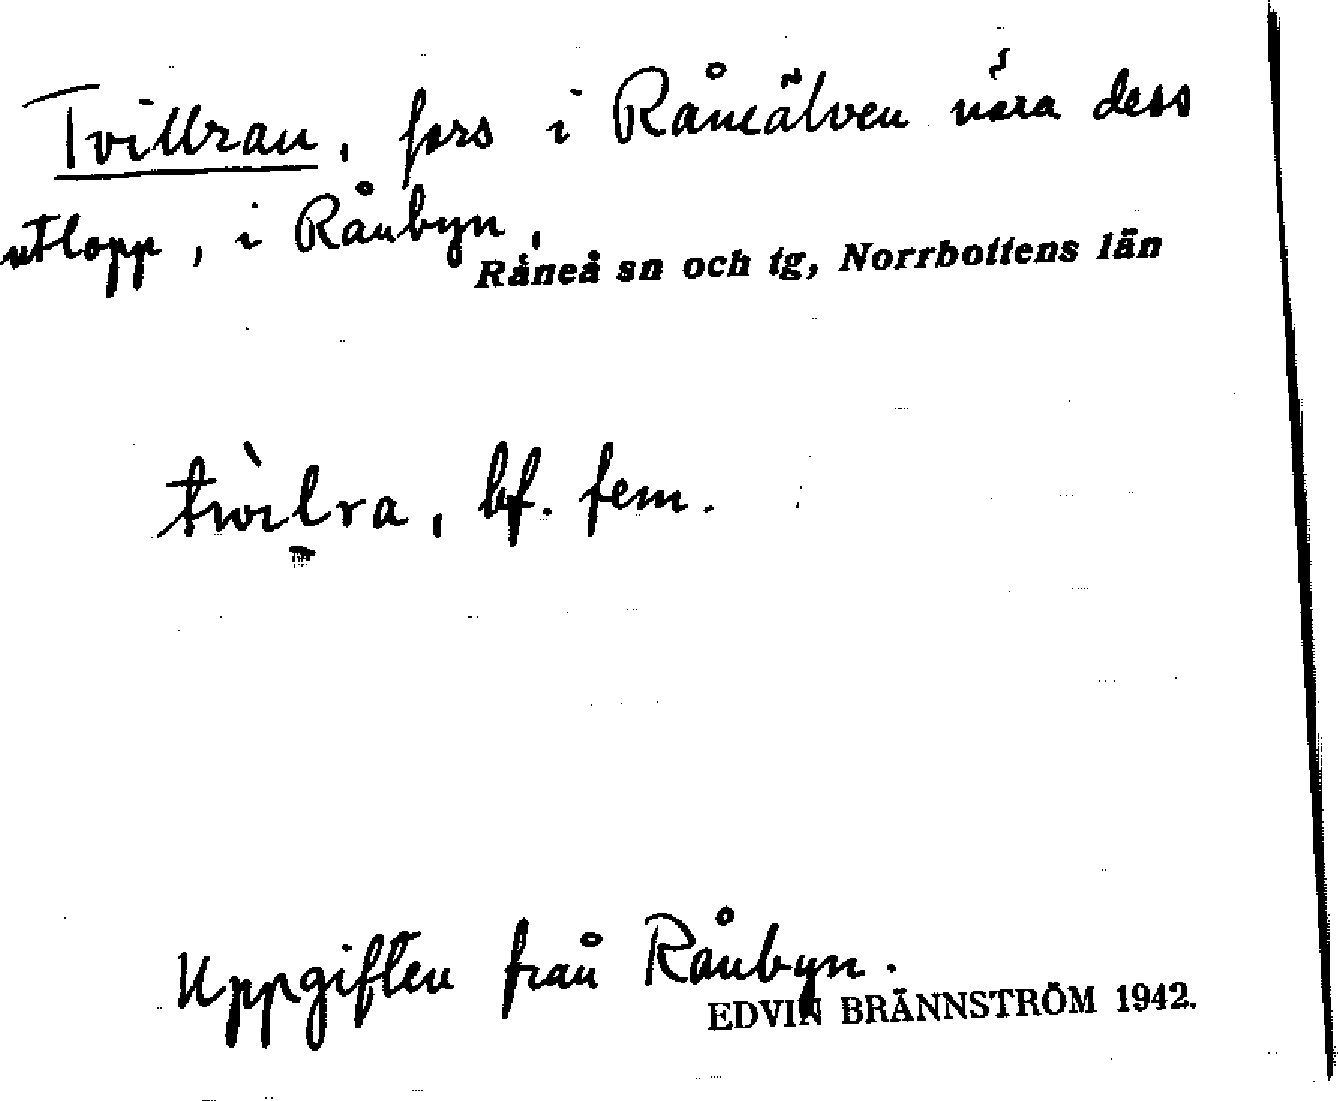 Tvillran, fors i Råneälven nära dess
utlopp, i Rånbyn,
Råneå sn och tg, Norrbottens län
twìlra, bf. fem.
Uppgiften från Rånbyn.
EDVIN BRÄNNSTRÖM 1942.